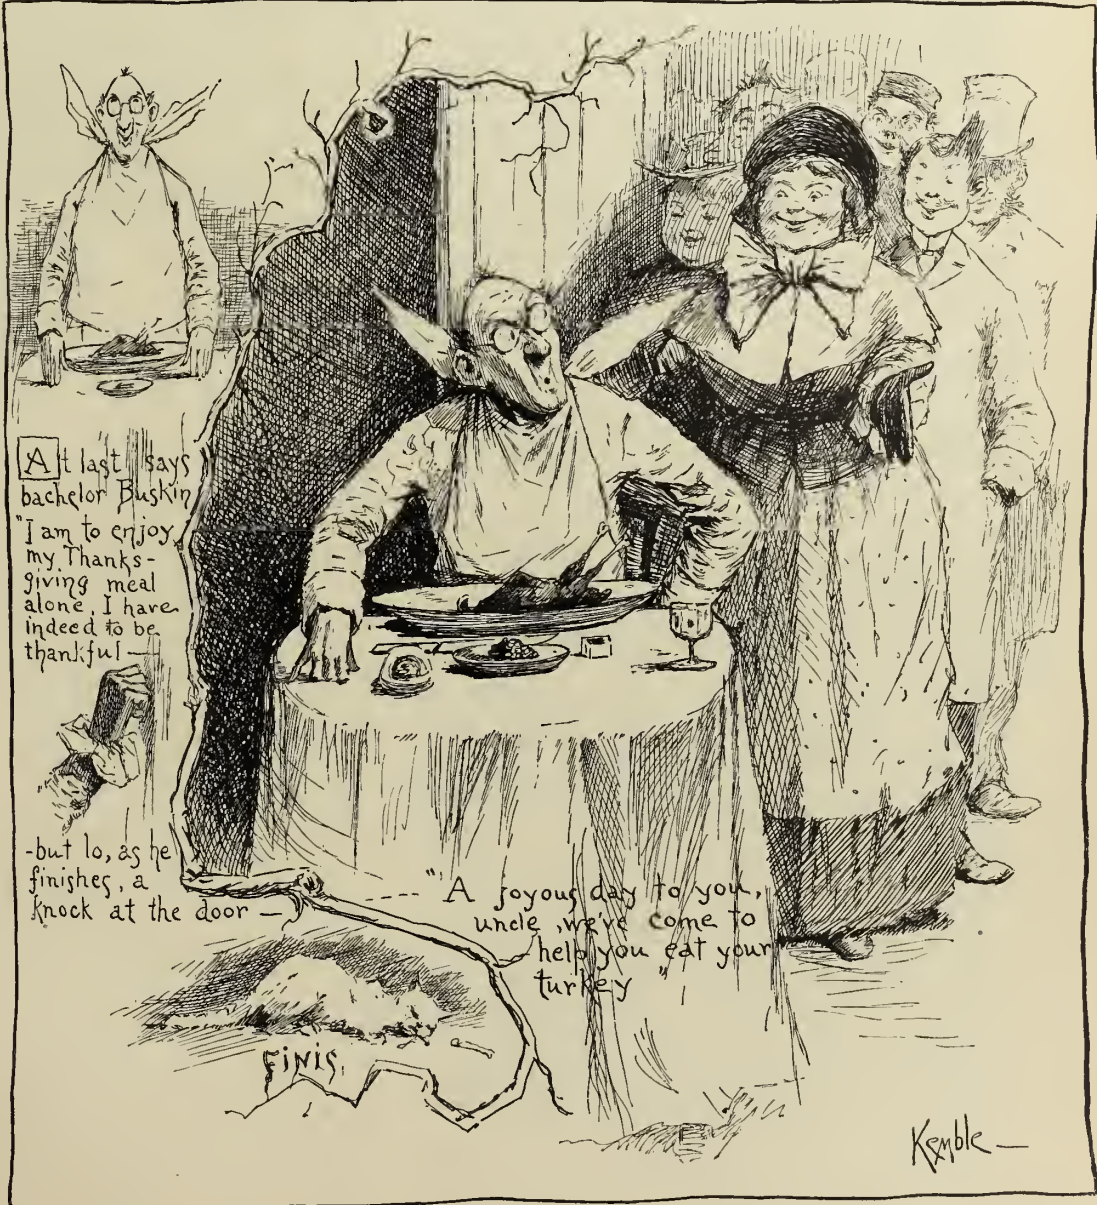 At last" says
bachelor Buskin
"I am to enjoy
my Thanks-
giving meal
alone, I have
indeed to be
thankful—
-but lo, as he
finishes, a
knock at the door —
---- "A joyous day to you,
uncle, we've come to
help you eat your
turkey"
FINIS.
Kemble —